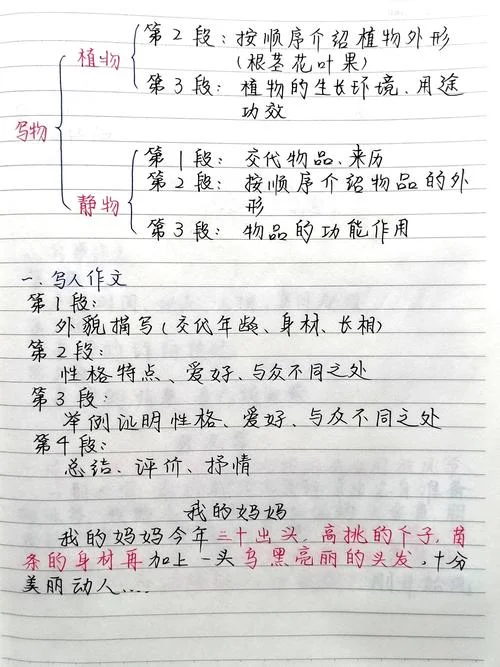 植物
第2段：按顺序介绍植物外形
（根茎花叶果）
第3段：植物的生长环境、用途
功效
写物
静物
第1段：交代物品、来历
第2段：按顺序介绍物品的外
形
第3段：物品的功能作用
一.写人作文
第1段：
外貌描写（交代年龄、身材、长相）
第2段：
性格特点、爱好、与众不同之处
第3段：
举例证明性格、爱好、与众不同之处
第4段：
总结、评价、抒情
我的妈妈
我的妈妈今年三十出头，高挑的个子，苗
条的身材再加上一头乌黑亮丽的头发，十分
美丽动人....